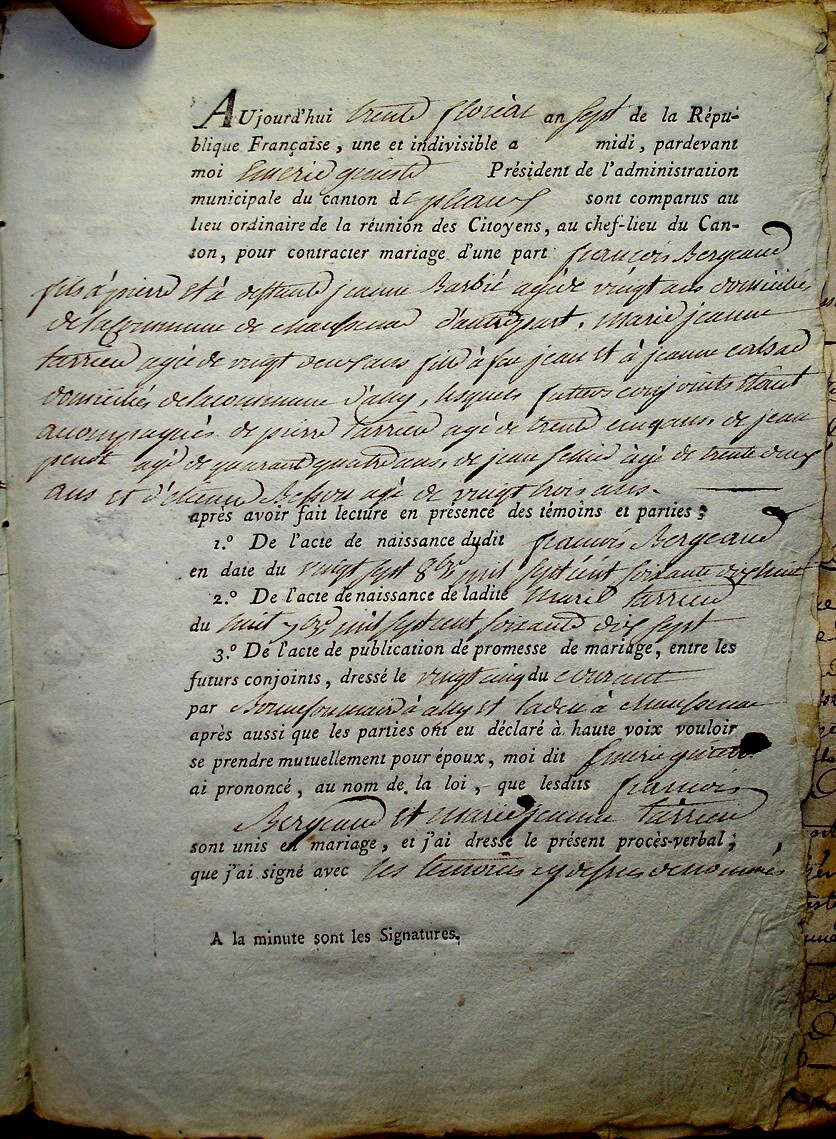 AUjourd'hui trente floréal an sept de la Répu-
blique Française, une et indivisible a midi, pardevant
moi Emerie Président de l'administration
municipale du canton de pleaux sont comparus au
lieu ordinaire de la réunion des Citoyens, au chef-lieu du Can-
ton, pour contracter mariage d'une part françois Bergeaud
fils à pierre et à deffunte jeanne Barbié agé de vingt ans domicilié
de la commune de chaussenac d'autre part, marie jeanne
tarrieu agée de vingt deux ans fille à feu jean et à jeanne
domiciliés de la commune d'ally, lesquels futurs conjoints étant
acompagnés de pierre tarrieu agé de trente cinq ans, de jean
agé de quarante quatre ans, de jean agé de trente deux
ans et d'étienne Besson agé de vingt trois ans.
après avoir fait lecture en présence des témoins et parties;
1.º De l'acte de naissance dudit françois Bergeaud
en date du vingt sept 8bre mil sept cent soixante dix huit
2.º De l'acte de naissance de ladite marie tarrieu
du huit mil sept cent soixante dix sept
3.º De l'acte de publication de promesse de mariage, entre les
futurs conjoints, dressé le vingt cinq du courant
par à ally et à chaussenac
après aussi que les parties ont eu déclaré à haute voix vouloir
se prendre mutuellement pour époux, moi dit Emerie
ai prononcé, au nom de la loi, que lesdits françois
Bergeaud et marie jeanne tarrieu
sont unis en mariage, et j'ai dressé le présent procès-verbal;
que j'ai signé avec les temoins cy dessus denommés
A la minute sont les Signatures.